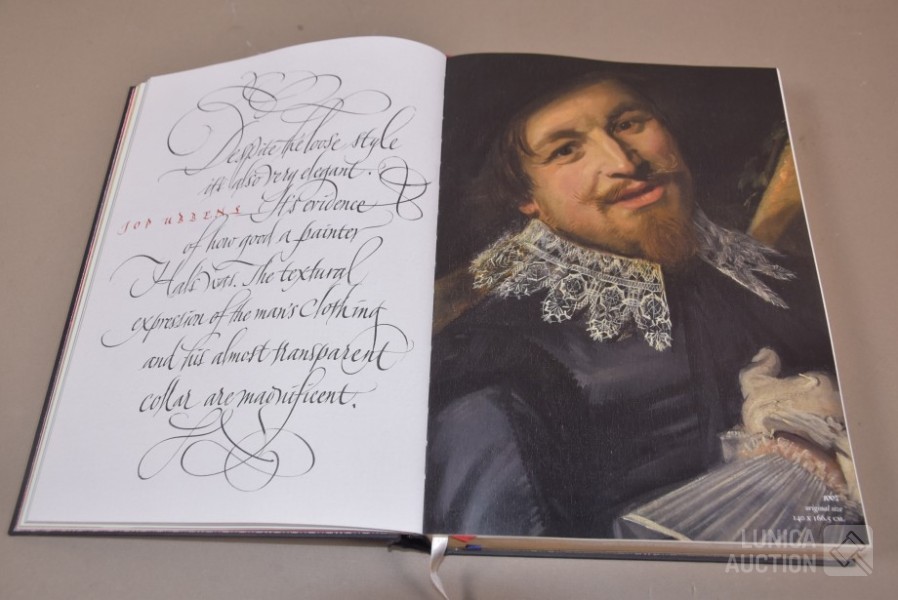 Despite the loose style
it's also very elegant.
JOP UBBENS It's evidence
of how good a painter
Hals was. The textural
expression of the man's clothing
and his almost transparent
collar are magnificent.
LUNICA
AUCTION